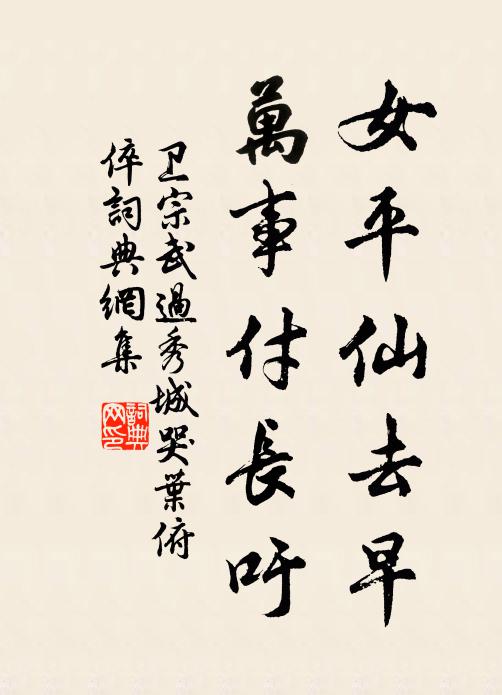 女平仙去早
萬事付長吁
卫宗武過秀城哭葉俯
倅詞典網集
詞典网印